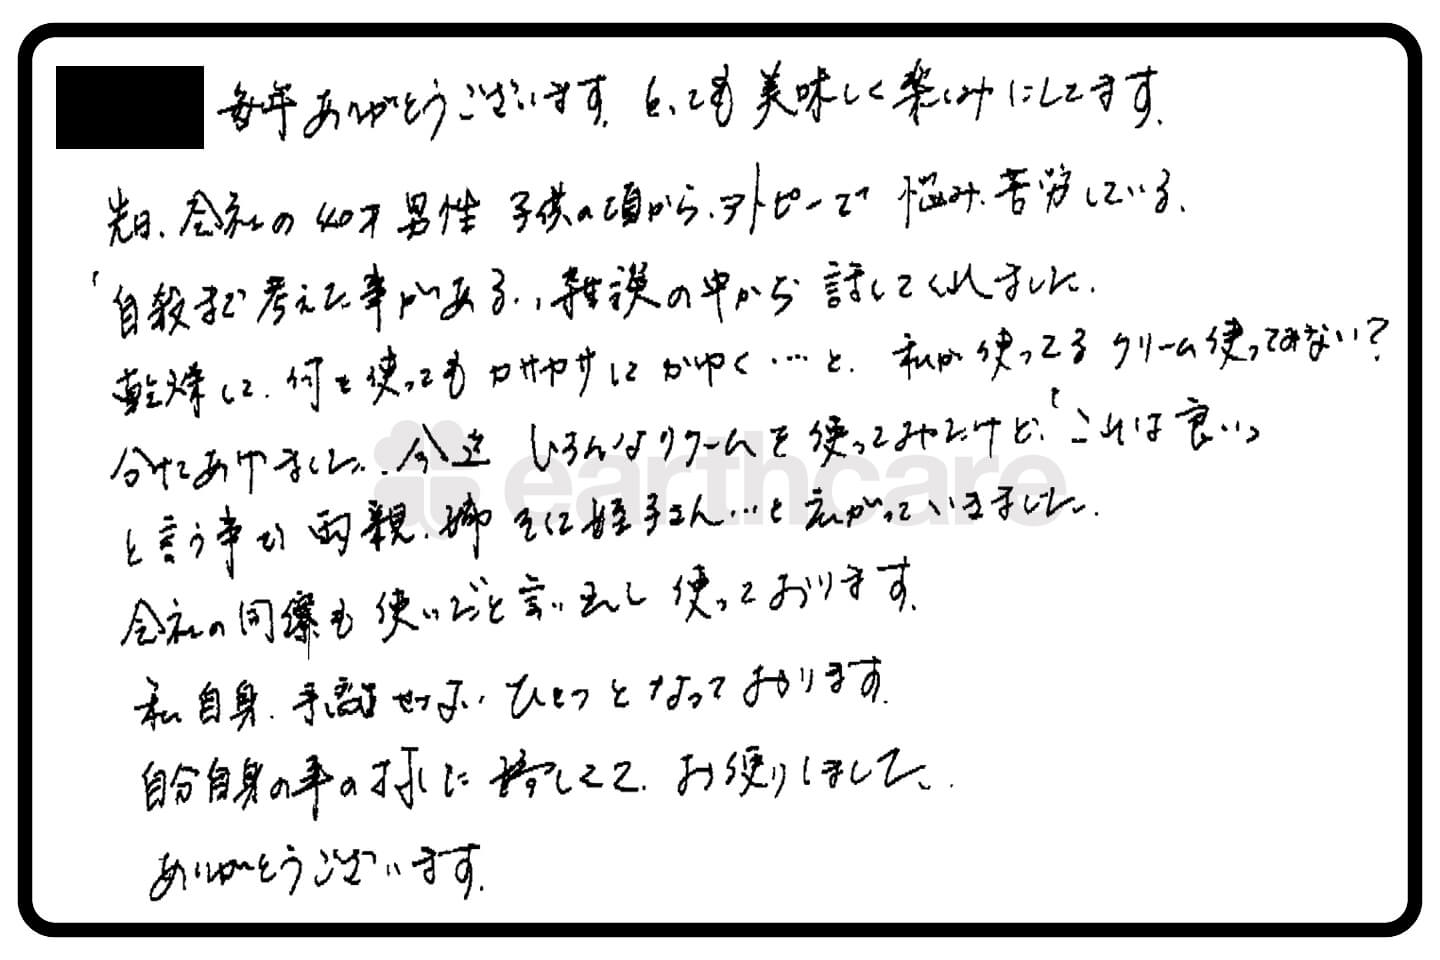 毎年ありがとうございます。とっても美味しく楽しみにしてます。
先日、会社の40才男性 子供の頃から、アトピーで 悩み、苦労している。
「自殺まで考えた事がある」、雑談の中から 話してくれました。
乾燥して、何を使ってもカサカサにかゆく…と、私が使ってるクリーム使ってみない?
分けてあげました。今迄 いろんなクリームを使ってみたけど、「これは良い」
と言う事で 両親、姉 それに姪子さん…と広がっていきました。
会社の同僚も使いだと言い出し 使っております。
私自身、手離せない ひとつとなっております。
自分自身の事の様に 嬉しくて、お便りしました。
ありがとうございます。
earthcare